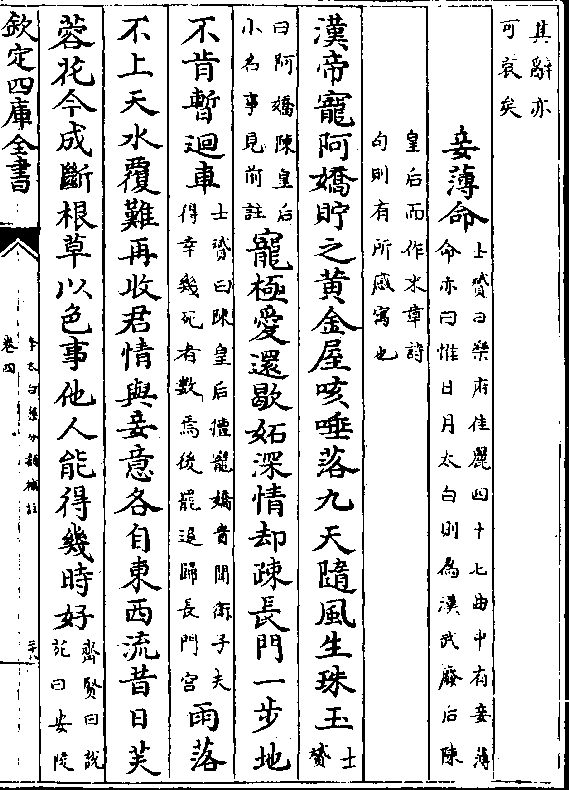 其辭亦
可哀矣
妾薄命
士贇曰樂府佳麗四十七曲中有妾薄
命亦曰惟日月太白則為漢武廢后陳
皇后而作末章詩
句則有所感寓也
漢帝寵阿嬌貯之黃金屋咳唾落九天隨風生珠玉
士贇
曰阿嬌陳皇后
小名事見前註
寵極愛還歇妬深情却疎長門一步地
不肯暫迴車
士贇曰陳皇后擅寵嬌貴聞衛子夫
得幸幾死者數焉後罷退歸長門宮
雨落
不上天水覆難再收君情與妾意各自東西流昔日芙
蓉花今成斷根草以色事他人能得幾時好
齊賢曰說
苑曰安陵
欽定四庫全書
李太白集分類補註
卷四
二十八